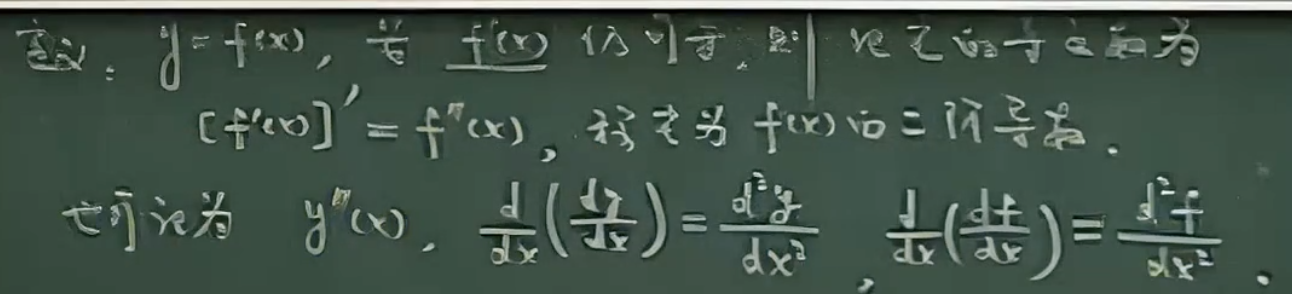 定义. y = f(x), 若 f'(x) 仍可导, 则 记它的导函数为
[f'(x)]' = f''(x), 称之为 f(x) 的二阶导数.
也可记为 y''(x), d/dx(dy/dx) = d²y/dx², d/dx(df/dx) = d²f/dx².